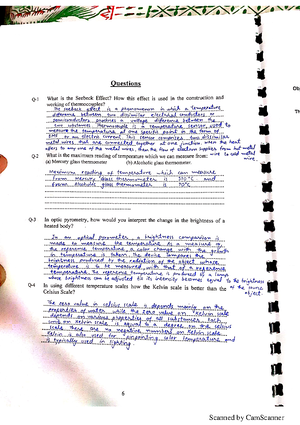 Questions
Q-1 What is the Seebeck Effect? How this effect is used in the construction and
working of thermocouples?
The seebeck effect is a phenomenon in which a temperature
difference between two dissimilar electrical conductors or
semiconductors produces a voltage difference between the
two substances. Thermocouple is a temperature sensor, used to
measure the temperature at one specific point in the form of
EMF or an electric current. This sensor comprises two dissimilar
metal wires that are connected together at one junction. when the heat
offers to any one of the metal wires, then the flow of electrons supplies from hot metal
wire to cold metal
wire.
Q-2 What is the maximum reading of temperature which we can measure from:
(a) Mercury glass thermometer (b) Alcoholic glass thermometer.
Maximum reading of temperature which can measure
from Mercury glass thermometer is and
from alcoholic glass thermometer is 70°C
Q-3 In optic pyrometry, how would you interpret the change in the brightness of a
heated body?
In an optical pyrometer, a brightness comparison is
made to measure the temperature. As a measure of
the reference temperature, a color change with the growth
in temperature is taken. The device compares the
brightness produced by the radiation of the object whose
temperature is to be measured, with that of a reference
temperature. The reference temperature is produced by a lamp
whose brightness can be adjusted till its intensity becomes equal to the brightness
of the source
object.
Q-4 In using different temperature scales how the Kelvin scale is better than the
Celsius Scale?
The zero value in celsius scale is depends mainly on the
properties of water while the zero value on Kelvin scale
depends on various properties of all substances. Each
unit on kelvin scale is equal to a degree on the celsius
scale. There are no negative numbers on Kelvin scale.
Kelvin is also used for reporting color temperature and
is typically used in lighting.
6
Scanned by CamScanner